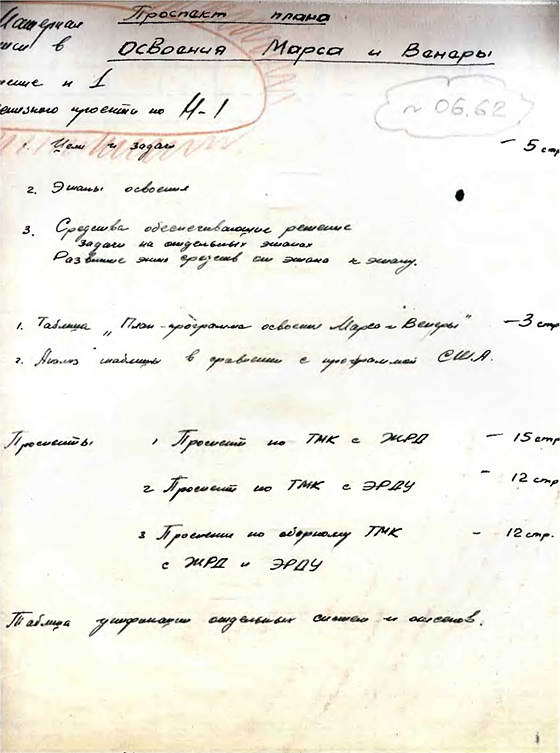 Проспект плана
Материал
в Освоения Марса и Венеры
н 1
проекта по Н-1
~ 06.62
1. Цели и задачи – 5 стр
2. Этапы освоения
3. Средства обеспечивающие решение
задачи на отдельных этапах
Развитие этих средств от этапа к этапу.
1. Таблица „План-программа освоения Марса и Венеры" – 3 стр
2. Анализ таблицы в сравнении с программой США.
Проспекты 1 Проспект по ТМК с ЖРД – 15 стр
2 Проспект по ТМК с ЭРДУ – 12 стр
3 Проспект по сборному ТМК – 12 стр.
с ЖРД и ЭРДУ
Таблица унификации отдельных систем и отсеков.